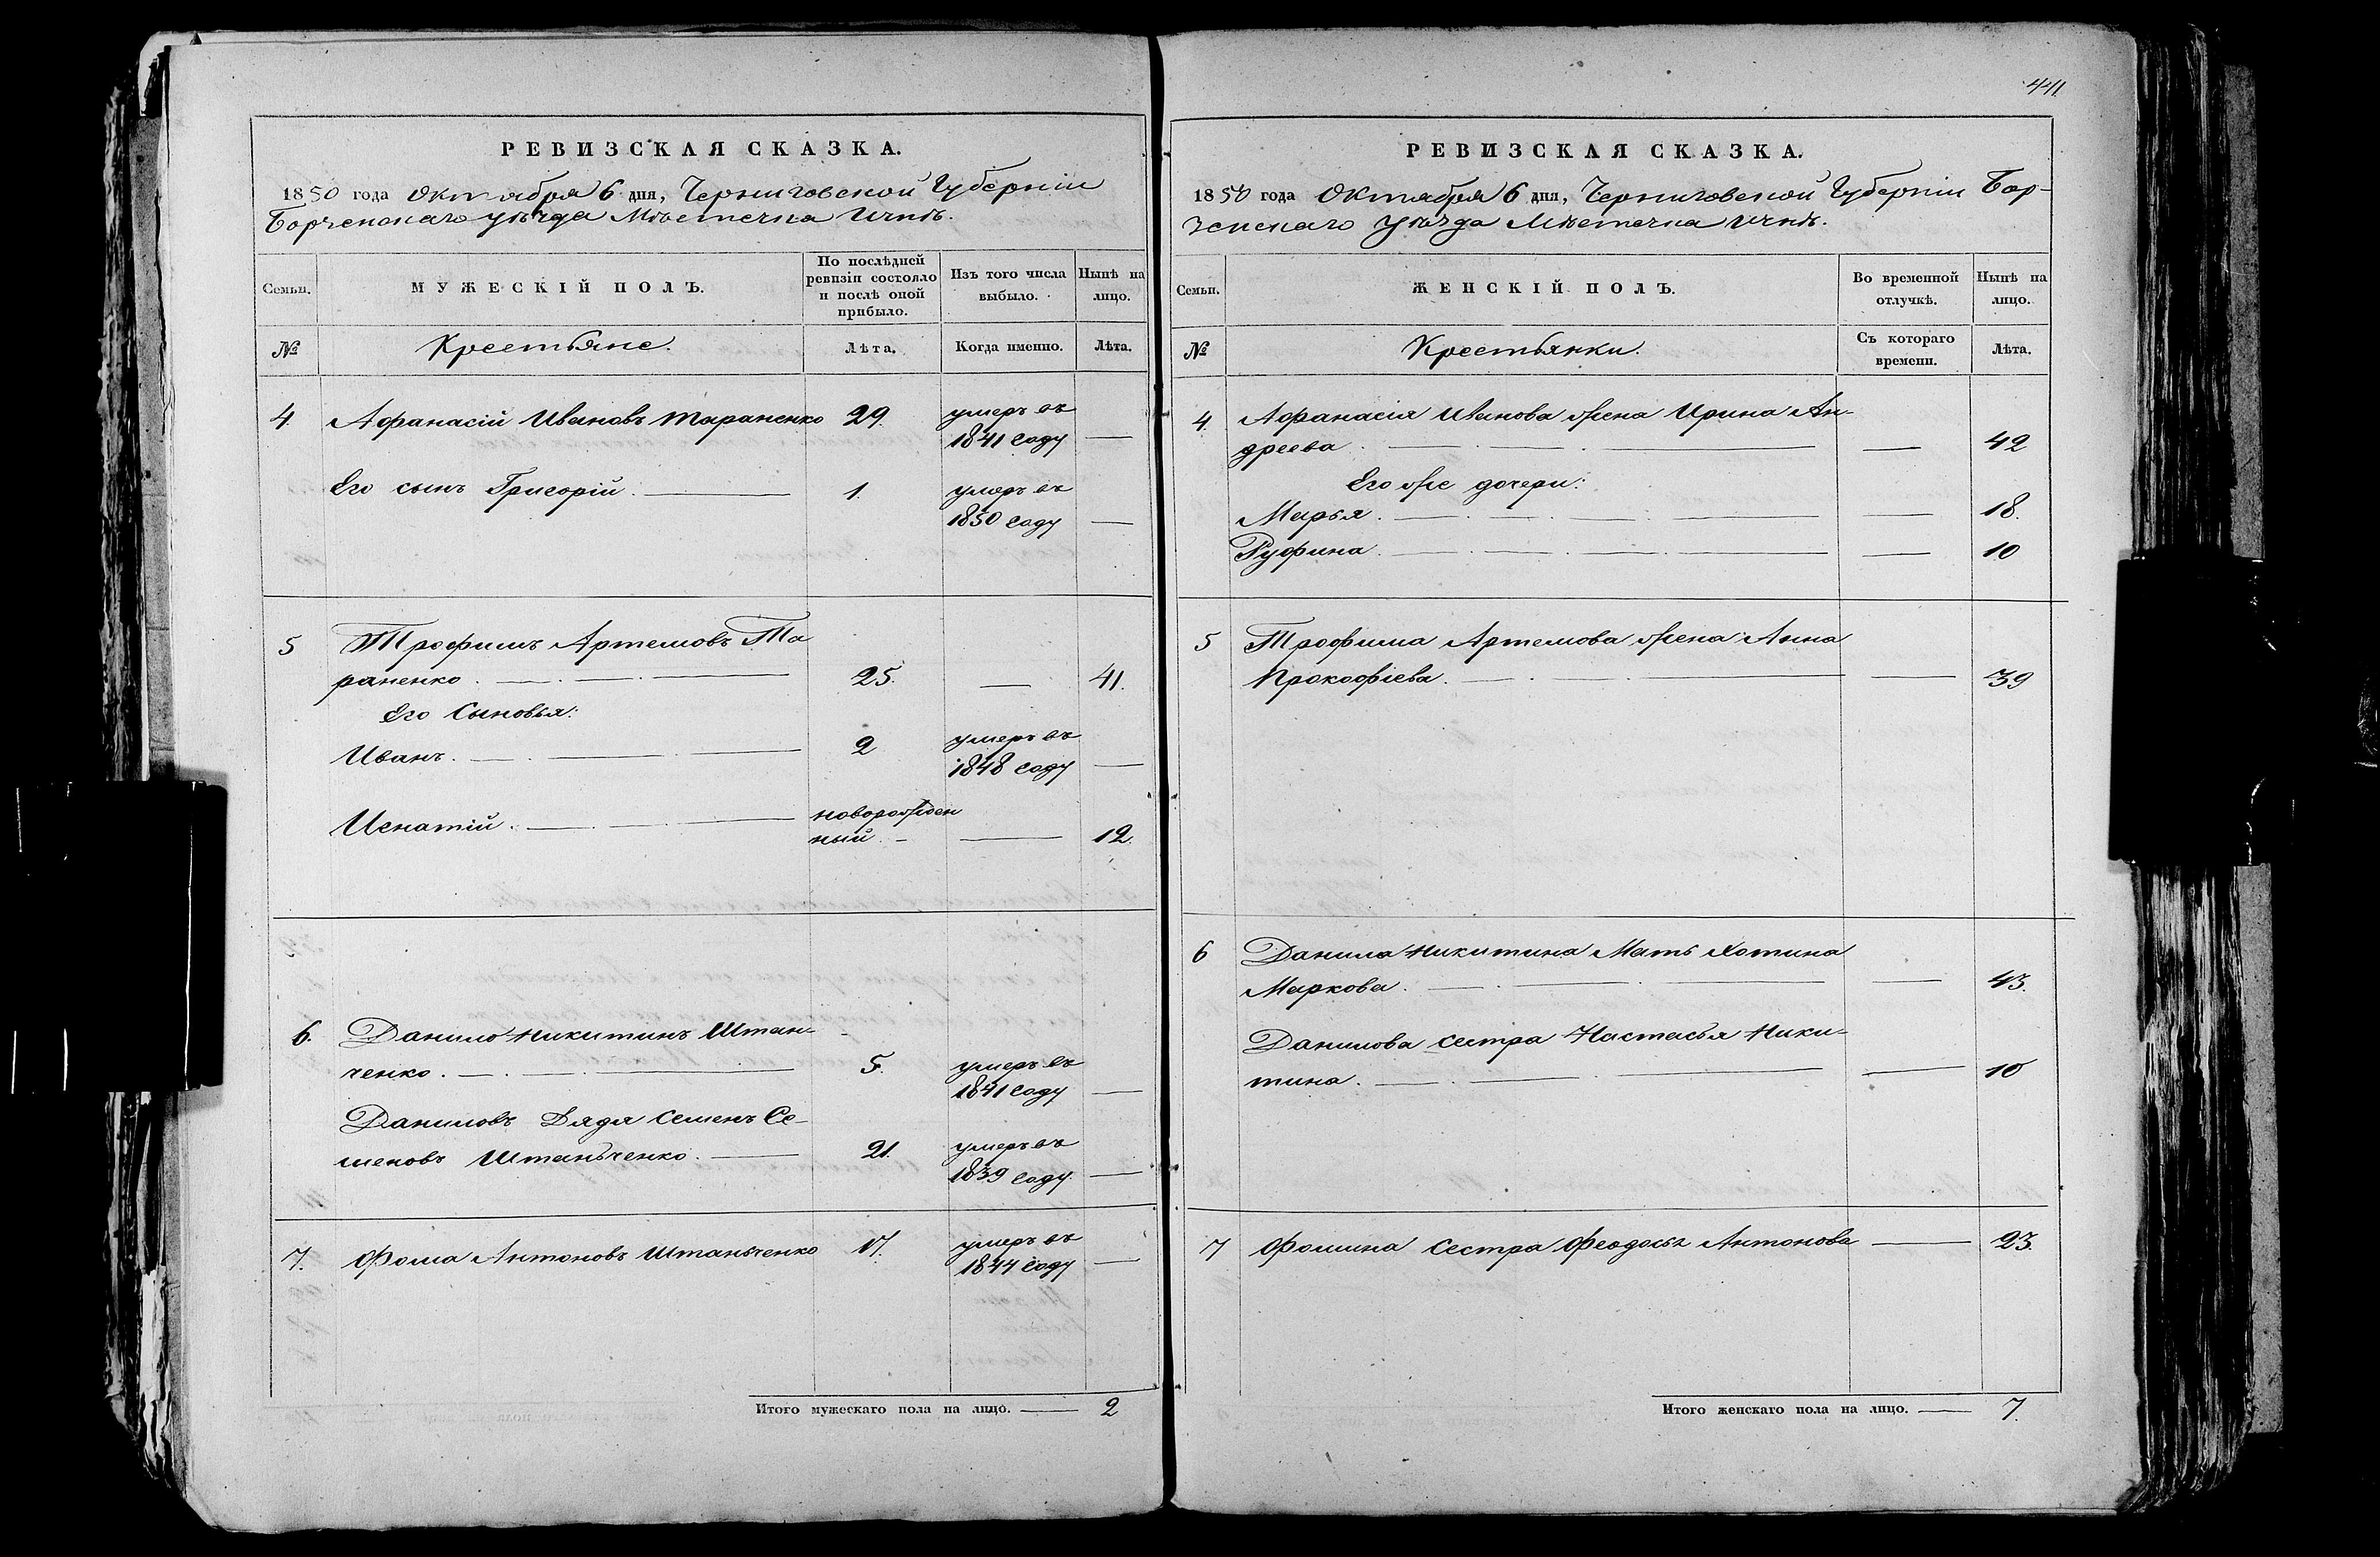 РЕВИЗСКАЯ СКАЗКА.
1850 года Октября 6 дня, Черниговской Губерніи
Борзенскаго уѣзда Мѣстечка Ичнѣ.
Семьи.
МУЖЕСКІЙ ПОЛЪ.
По послѣдней
ревизіи состояло
и послѣ оной
прибыло.
Изъ того числа
выбыло.
Нынѣ на
лицо.
№
Крестьяне.
Лѣта.
Когда именно.
Лѣта.
4. Афанасій Ивановъ Тараненко 29. умеръ въ
1841 году —
Его сынъ Григорій. — 1. умеръ въ
1850 году —
5 Трофимъ Артемовъ Та
раненко. — 25. — 41.
Его Сыновья:
Иванъ. — 2 умеръ въ
1848 году —
Игнатій. — новорожден
ный. — — 12.
6. Данило Никитинъ Штан-
ченко. — 5. умеръ въ
1841 году —
Даниловъ Дядя Семенъ Се-
меновъ Штаньченко. — 21. умеръ въ
1839 году —
7. Фома Антоновъ Штаньченко 17. умеръ въ
1844 году —
Итого мужескаго пола на лицо. — 2
441
РЕВИЗСКАЯ СКАЗКА.
1850 года Октября 6 дня, Черниговской Губерніи Бор-
зенскаго уѣзда Мѣстечка Ичнѣ.
Семьи.
ЖЕНСКІЙ ПОЛЪ.
Во временной
отлучкѣ.
Нынѣ на
лицо.
№
Крестьянки.
Съ котораго
времени.
Лѣта.
4. Афанасія Иванова жена Ирина Ан-
дреева. — — 42
Его же дочери:
Марья. — — 18.
Руфина. — — 10
5 Трофима Артемова жена Анна
Прокофіева. — — 39
6 Данила Никитина Мать Хотина
Маркова. — — 43.
Данилова сестра Настасья Ники-
тина. — — 10
7 Фомина Сестра Феодосья Антонова — 23.
Итого женскаго пола на лицо. — 7.